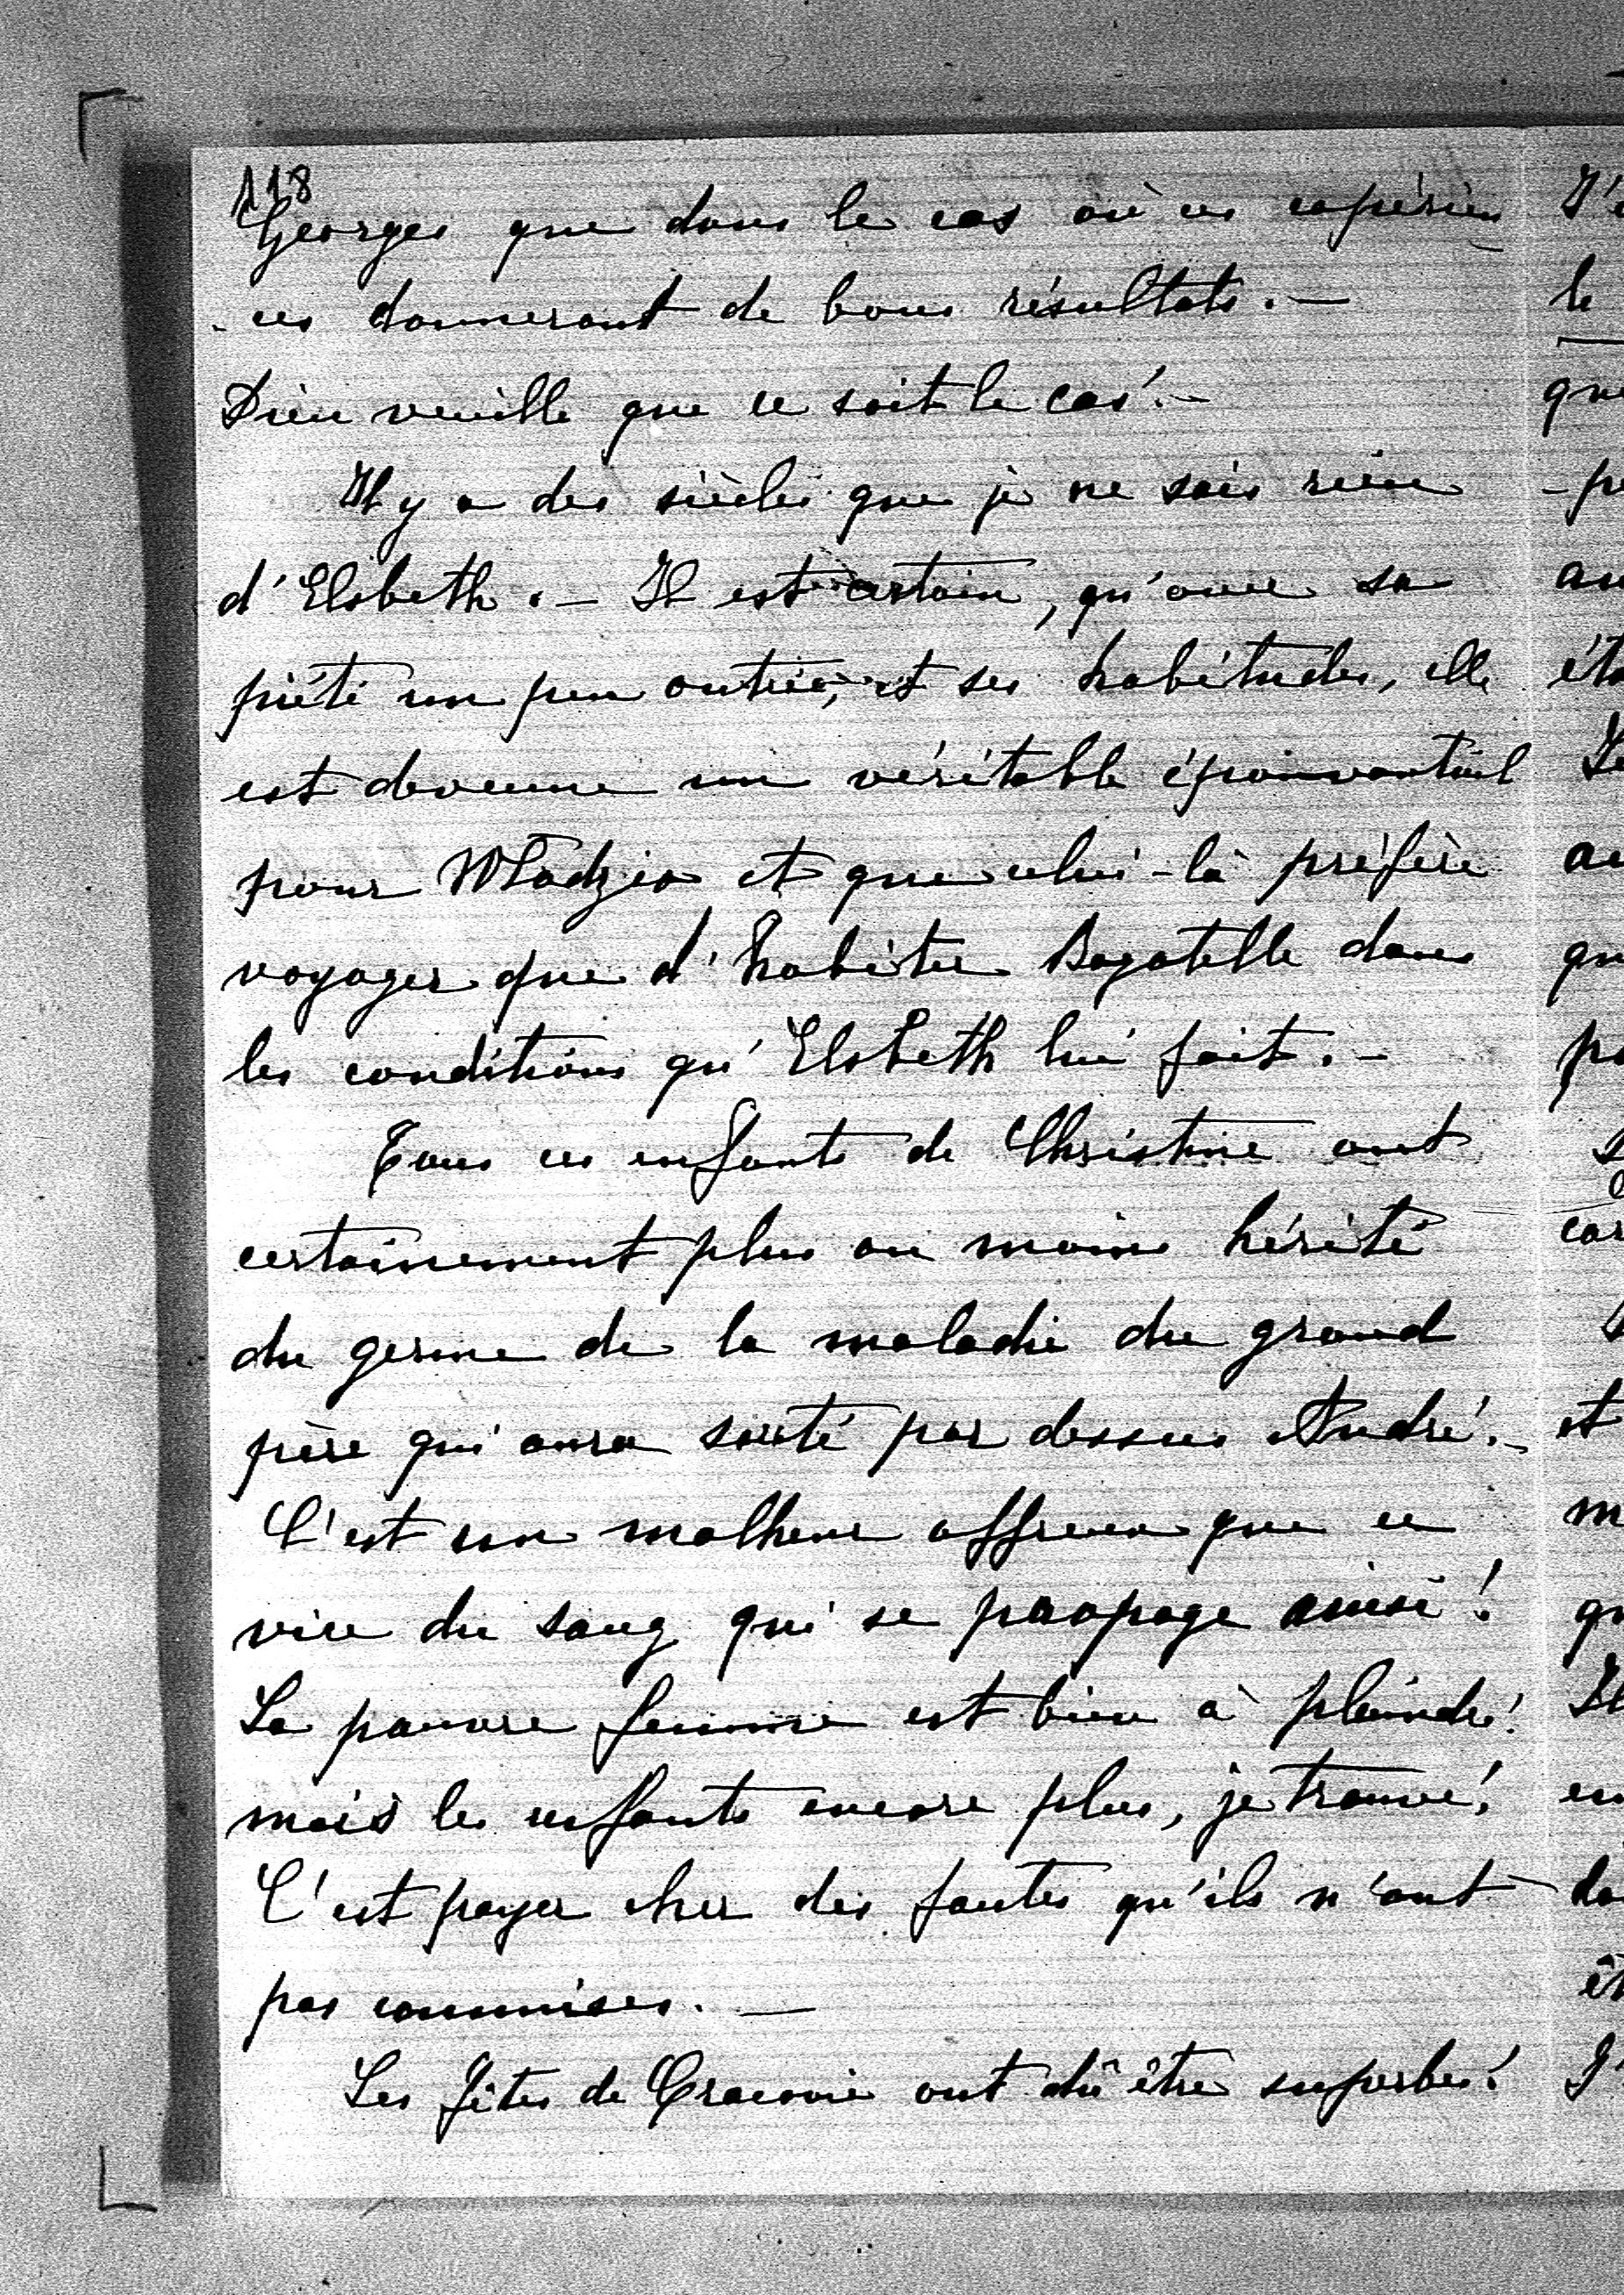 118
Georges que dans le cas où ces expérien
-ces donneront de bons résultats. —
Dieu veuille que ce soit le cas! -
Il y a des siècles que je ne sais rien
d'Elsbeth. — Il est certain, qu'avec sa
piété un peu outrée, et ses habitudes, elle
est devenue un véritable épouvantail
pour Władzio et que celui-là préfère
voyager que d'habiter Bagatelle dans
les conditions qu'Elsbeth lui fait. -
Tous ces enfants de Christine ont
certainement plus ou moins hérité
du germe de la maladie du grand
père qui aura sauté par dessus André. -
C'est un malheur affreux que ce
vice du sang qui se propage ainsi!
La pauvre femme est bien à plaindre!
mais les enfants encore plus, je trouve!
C'est payer cher des fautes qu'ils n'ont
pas commises. —
Les fêtes de Cracovie ont dû être superbes!